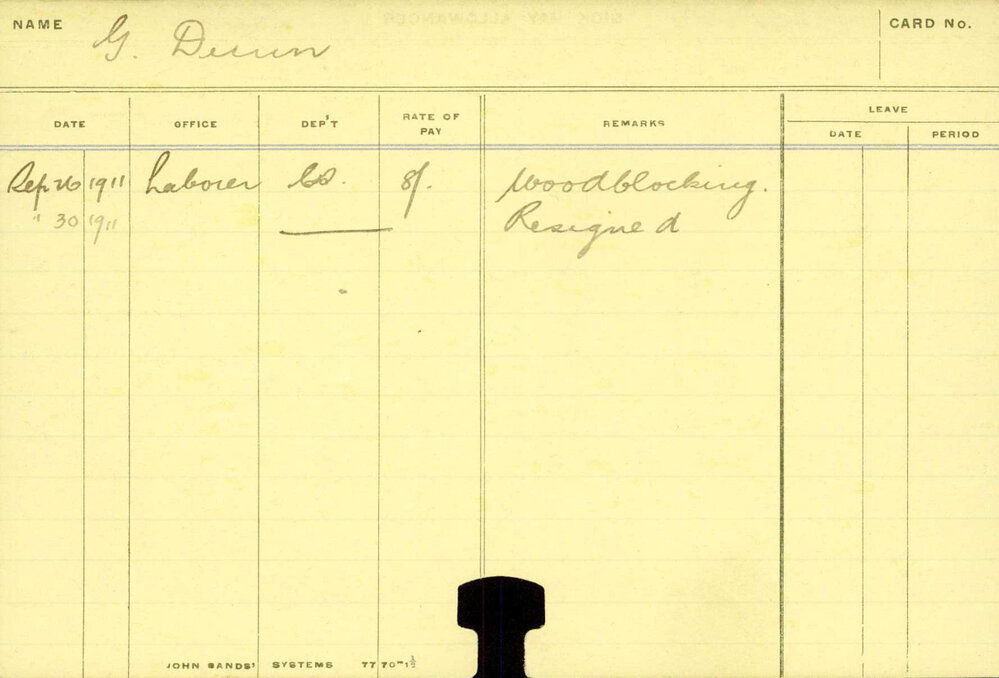 NAME G. CARD No.
DATE OFFICE DEP'T RATE OF PAY REMARKS LEAVE
DATE PERIOD
Sep 26 1911 Laborer 8/. Woodblocking.
" 30 1911 Resigned
JOHN SANDS' SYSTEMS 77 70